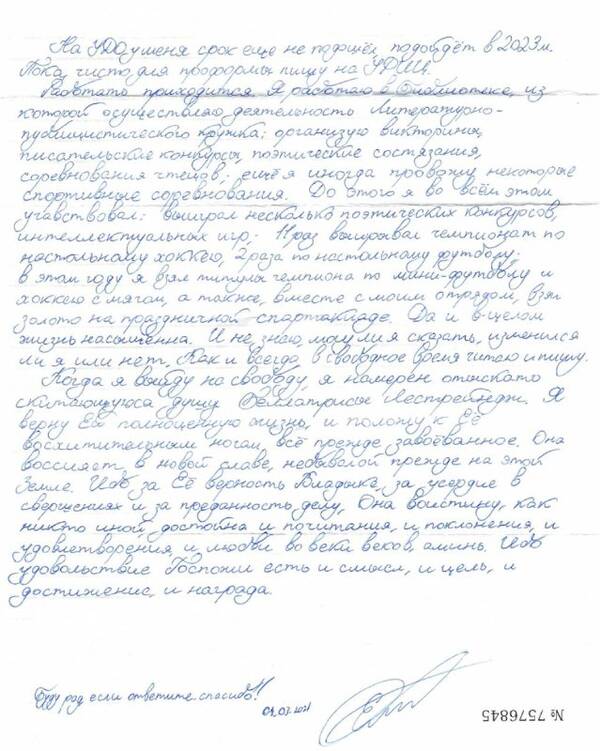 На УДО у меня срок ещё не подошёл, подойдёт в 2023м.
Пока чисто для проформы пишу на УДИЦ.
Работать приходится. Я работаю в библиотеке, из
которой осуществляю деятельность Литературно-
публицистического кружка: организую викторины,
писательские конкурсы, поэтические состязания,
соревнования чтецов; ещё я иногда провожу некоторые
спортивные соревнования. До этого я во всём этом
учавствовал: выиграл несколько поэтических конкурсов,
интеллектуальных игр; 11 раз выигрывал чемпионат по
настольному хоккею, 2 раза по настольному футболу;
в этом году я взял титулы чемпиона по мини-футболу и
хоккею с мячом, а также, вместе с моим отрядом, взял
золото на праздничной спартакиаде. Да и в-целом
жизнь насыщенна. И не знаю, могу ли я сказать, изменился
ли я или нет. Как и всегда, в свободное время читаю и пишу.
Когда я выйду на свободу, я намерен отыскать
скитающуюся душу Беллатрисы Лестрейндж. Я
верну Ей полноценную жизнь, и положу к Её
восхитительным ногам, всё прежде завоёванное. Она
воссияет, в новой славе, небывалой прежде на этой
Земле. Ибо за Её верность Владыке, за усердие в
свершениях и за преданность делу, Она воистину, как
никто иной, достойна и почитания, и поклонения, и
удовлетворения, и любви во веки веков, аминь. Ибо
удовольствие Госпожи есть и смысл, и цель, и
достижение, и награда.
Буду рад если ответите. спасибо!!
№ 7576845